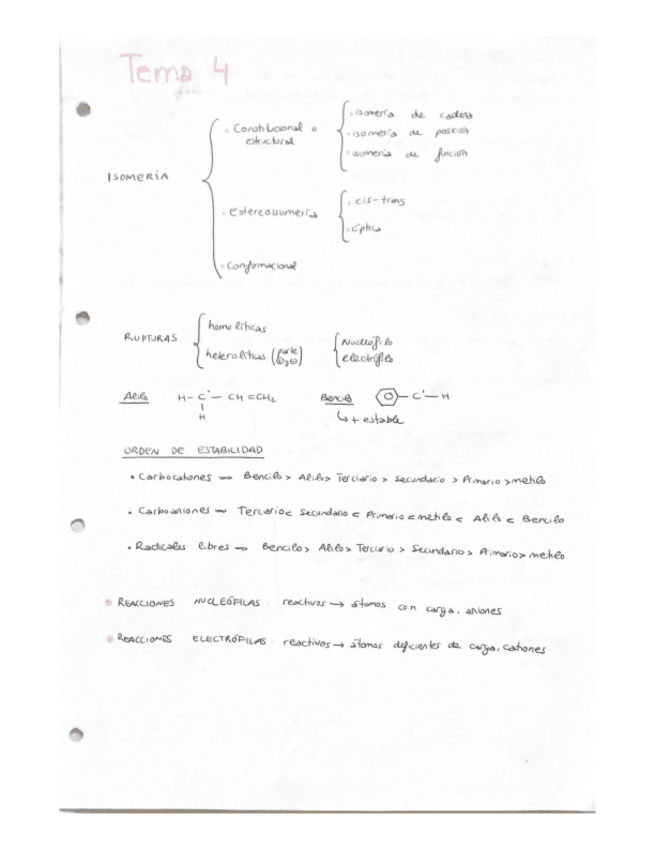 Tema 4
ISOMERÍA
· Constitucional o estructural
· isomería de cadena
· isomería de posición
· isomería de función
· Estereoisomería
· cis-trans
· óptica
· Conformacional
RUPTURAS
homolíticas
heterolíticas (parte ⊕ y ⊖)
Nucleófilo
electrófilo
Alilo H-C·-CH=CH2
H
Bencilo C·-H
↳ + estable
ORDEN DE ESTABILIDAD
• Carbocationes → Bencilo > Alilo > Terciario > Secundario > Primario > metilo
• Carboaniones → Terciario < Secundario < Primario < metilo < Alilo < Bencilo
• Radicales libres → Bencilo > Alilo > Terciario > Secundario > Primario > metilo
• REACCIONES NUCLEÓFILAS: reactivos → átomos con carga, aniones
• REACCIONES ELECTRÓFILAS: reactivos → átomos deficientes de carga, cationes